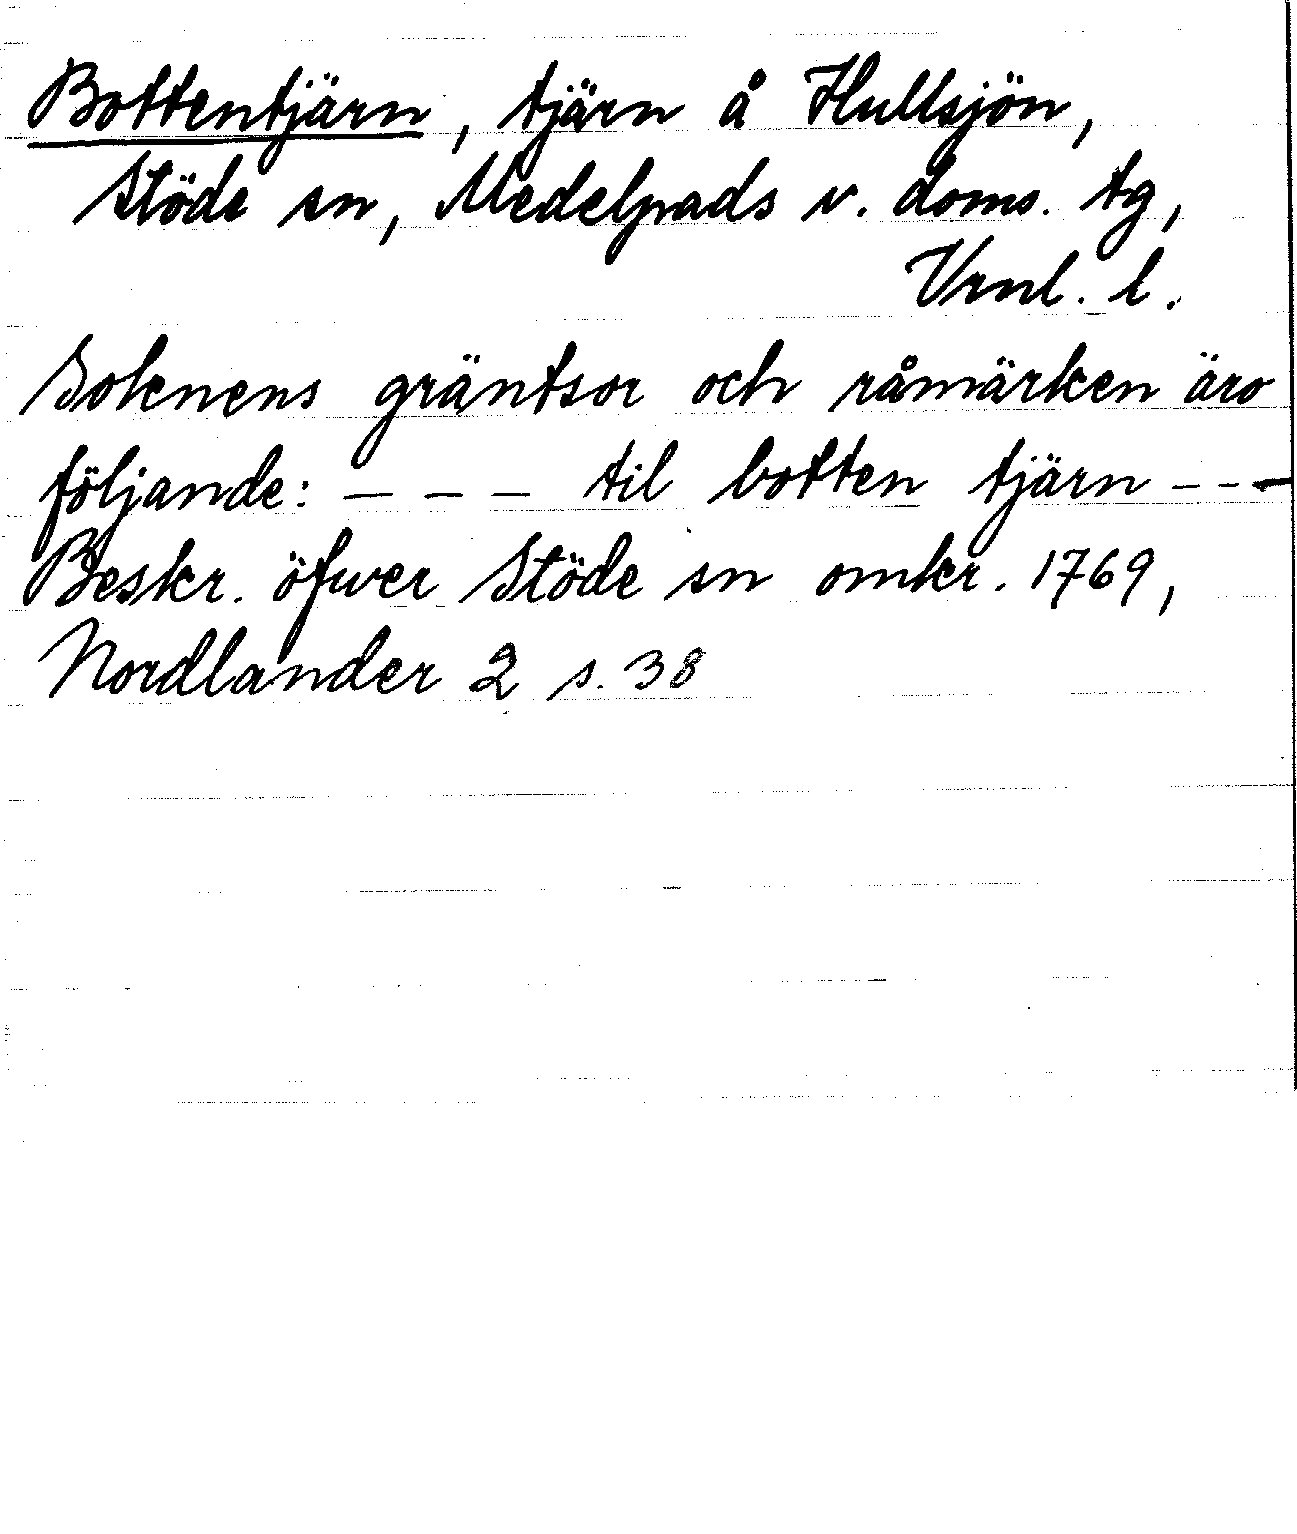 Bottentjärn, tjärn å Hullsjön,
Stöde sn, Medelpads v. doms. tg,
Vrnl. l.
Sokenens gräntsor och råmärken äro
följande: — — — til botten tjärn – – –
Beskr. öfwer Stöde sn omkr. 1769,
Nordlander 2 s. 38